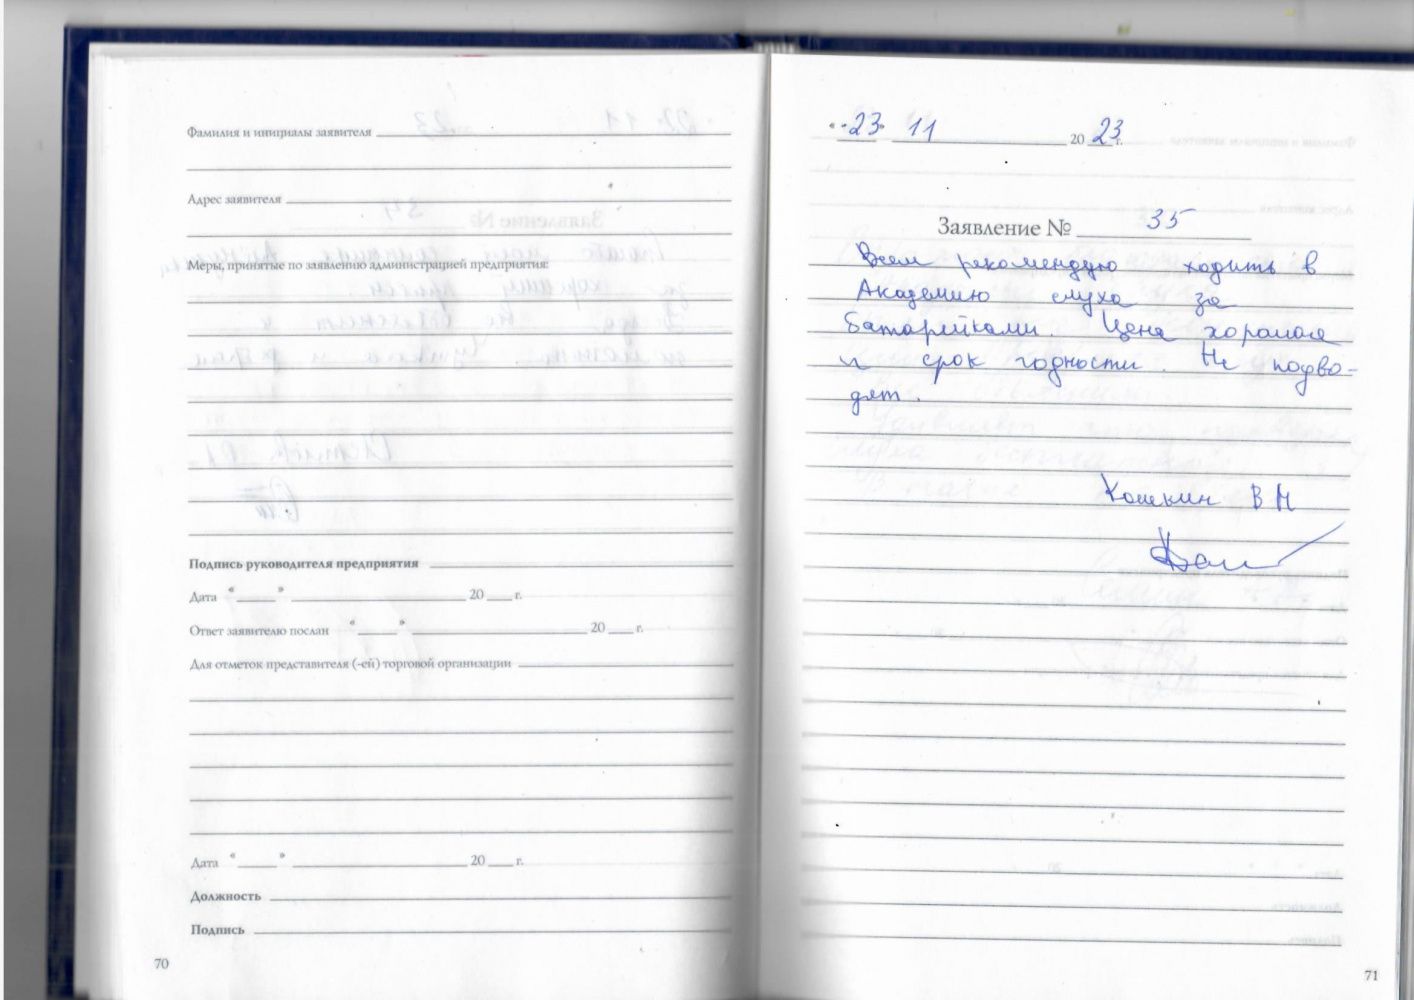 Фамилия и инициалы заявителя
Адрес заявителя
Меры, принятые по заявлению администрацией предприятия:
Подпись руководителя предприятия
Дата "____" ____ 20 ___ г.
Ответ заявителю послан "____" ____ 20 ___ г.
Для отметок представителя (-ей) торговой организации
Дата "____" ____ 20 ___ г.
Должность
Подпись
70
"23" 11 2023 г.
Заявление № 35
Всем рекомендую ходить в
Академию слуха за
батарейками. Цена хорошая
и срок годности. Не подво-
дят.
Кошкин В Н
71